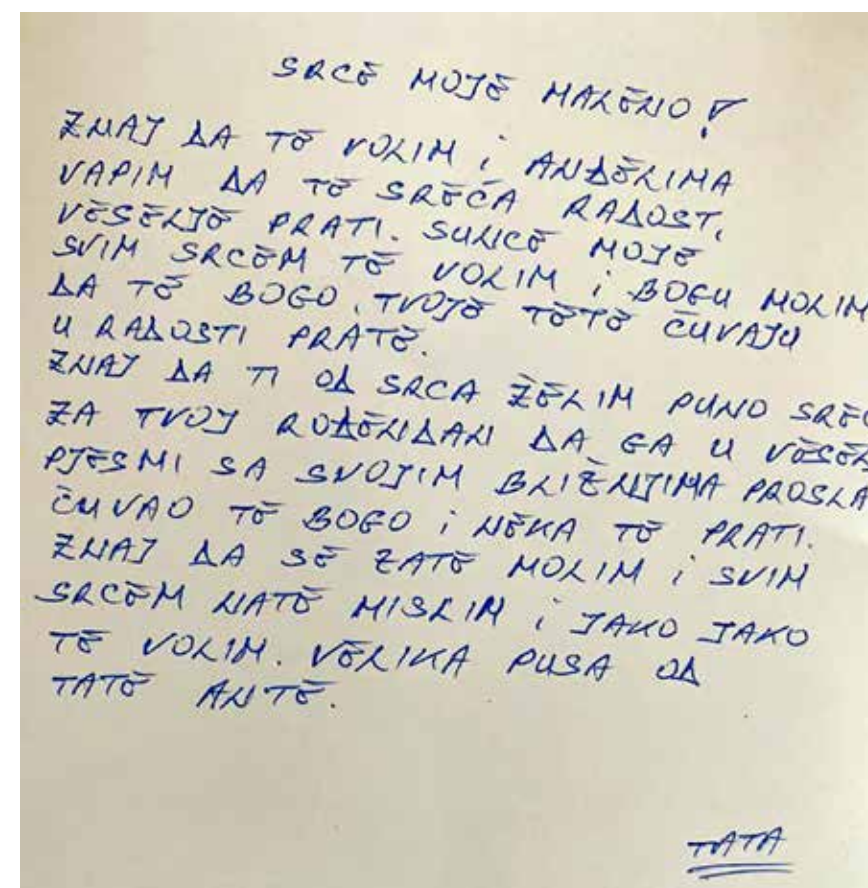 SRCE MOJE MALENO!
ZNAJ DA TE VOLIM i ANĐELIMA
VAPIM DA TE SREĆA RADOST,
VESELJE PRATI. SUNCE MOJE
SVIM SRCEM TE VOLIM i BOGU MOLIM
DA TE BOGO, TVOJE TETE ČUVAJU
U RADOSTI PRATE.
ZNAJ DA TI OD SRCA ŽELIM PUNO SREĆ
ZA TVOJ ROĐENDAN DA GA U VESEL
PJESMI SA SVOJIM BLIŽNJIMA PROSLA
ČUVAO TE BOGO i NEKA TE PRATI.
ZNAJ DA SE ZATE MOLIM i SVIM
SRCEM NATE MISLIM i JAKO JAKO
TE VOLIM. VELIKA PUSA OD
TATE ANTE.
TATA